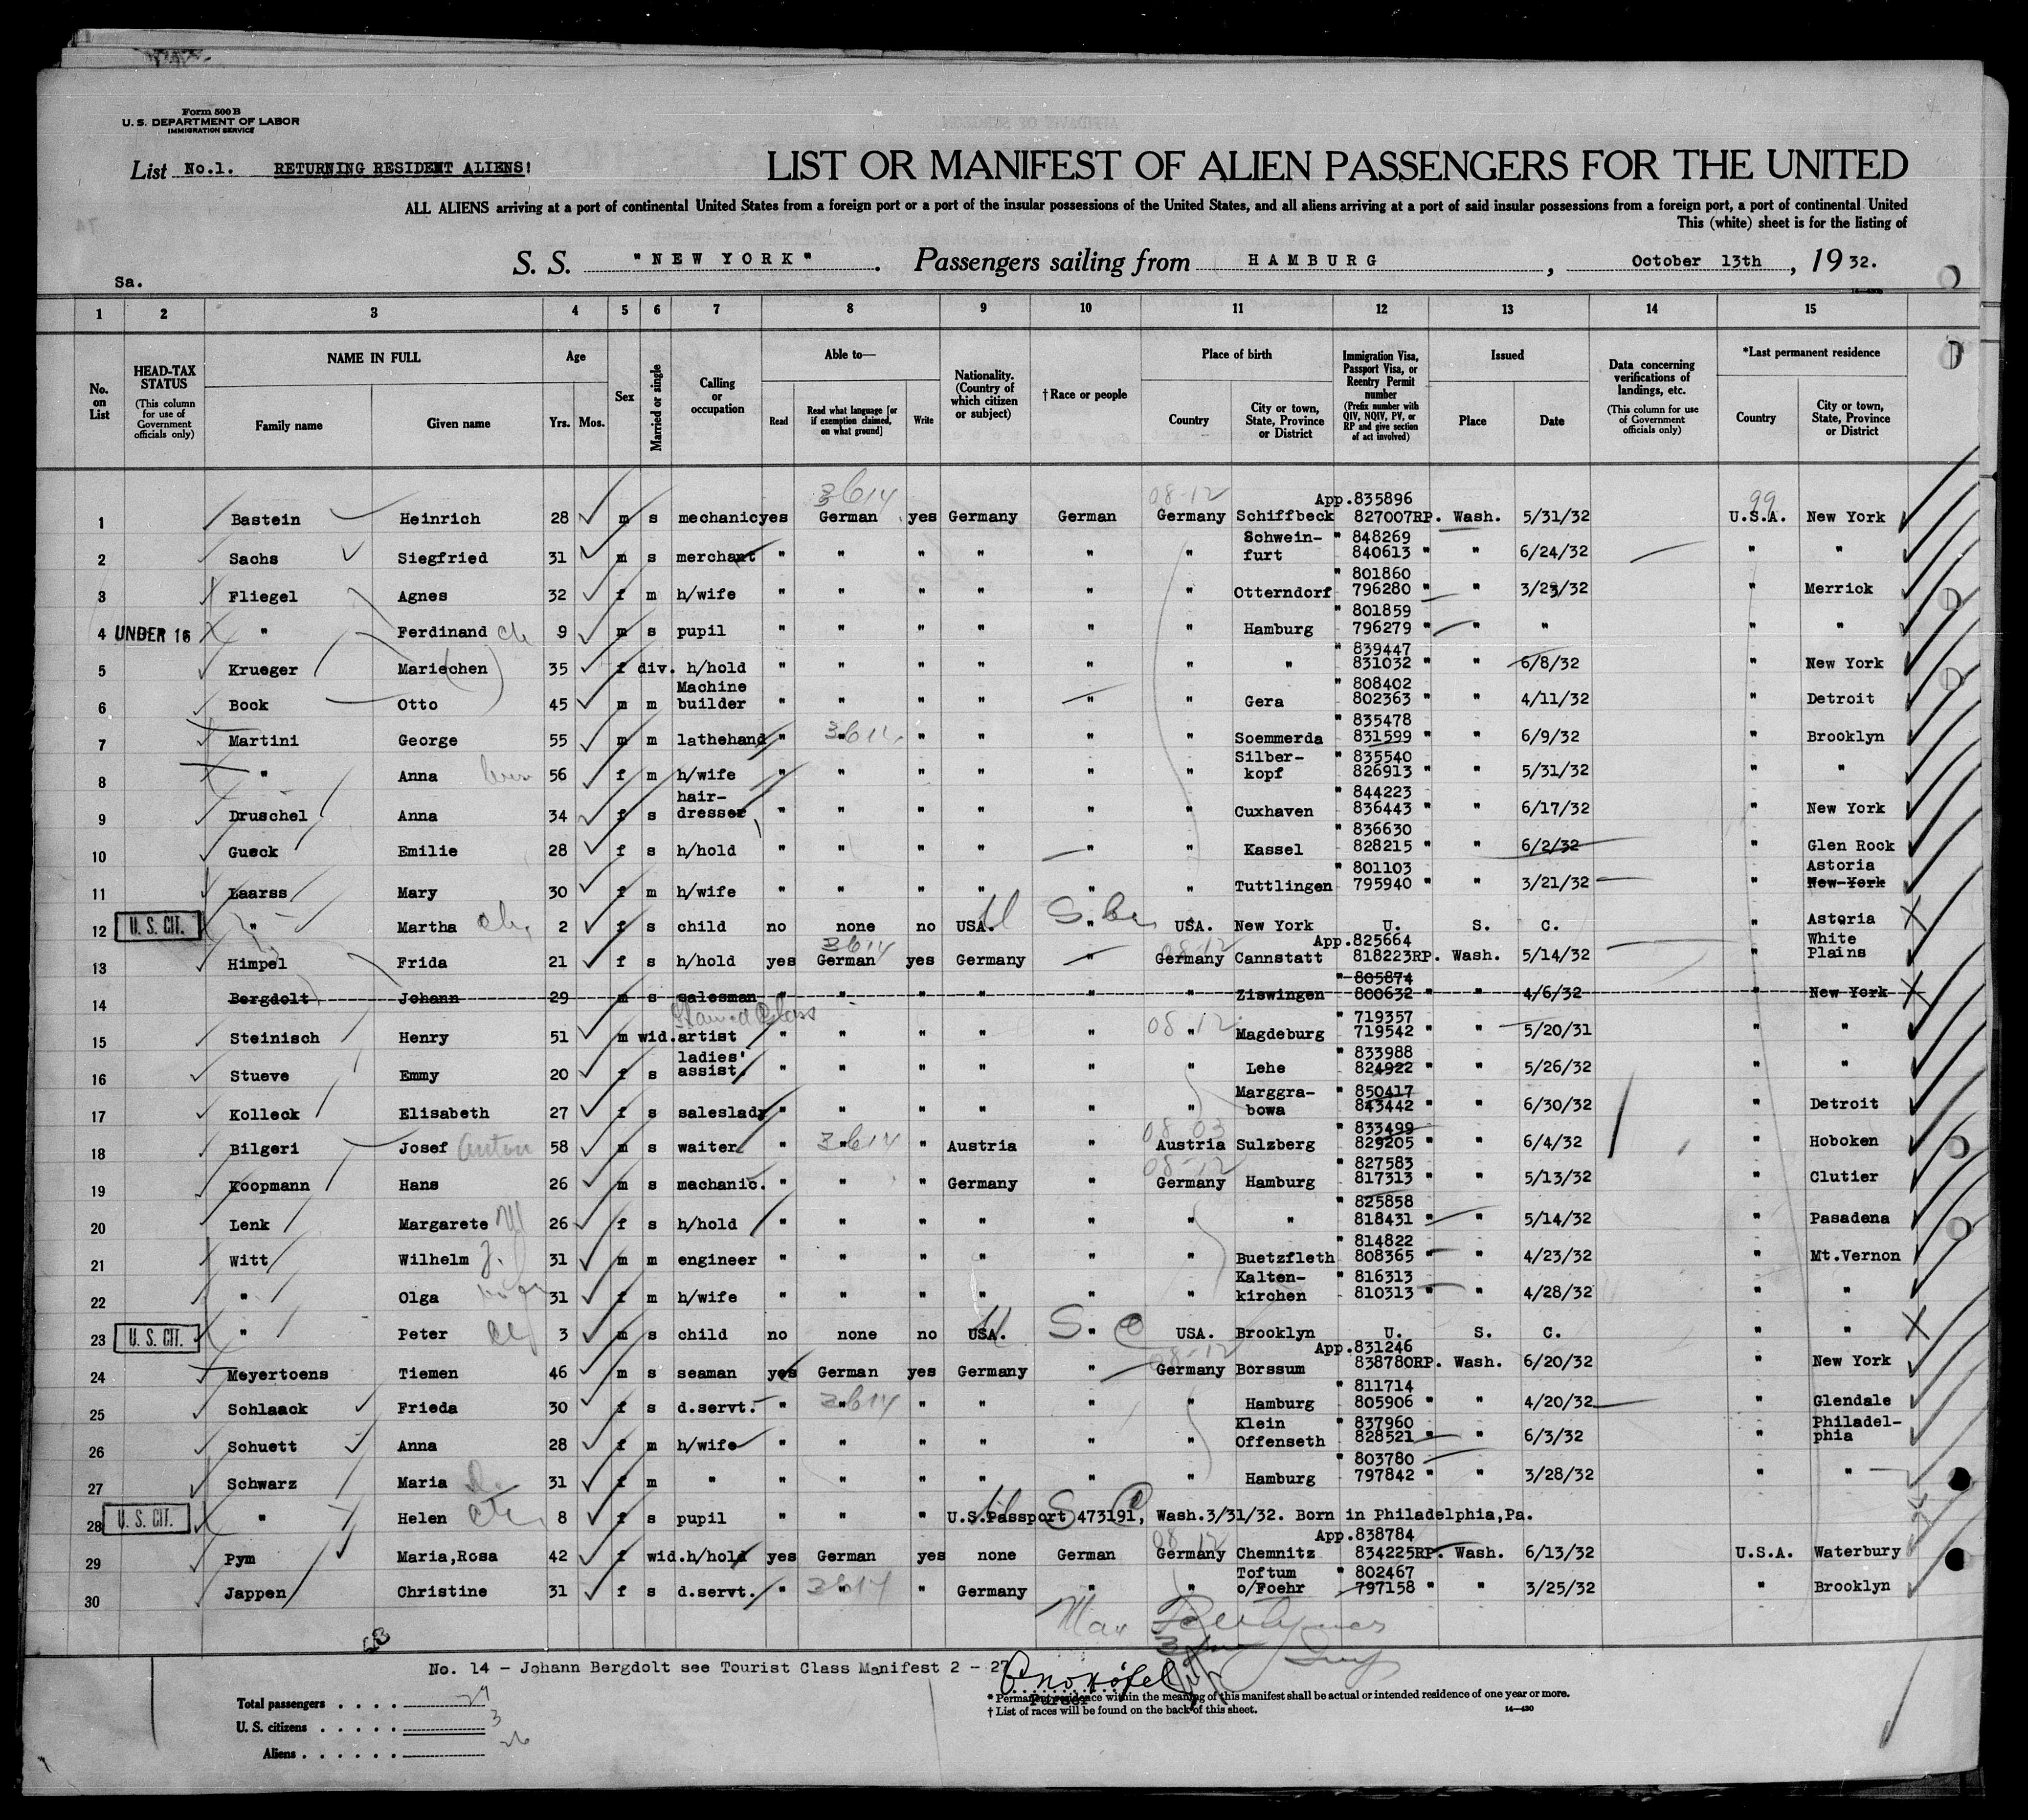 Form 500 B
U. S. DEPARTMENT OF LABOR
IMMIGRATION SERVICE
List No.1. RETURNING RESIDENT ALIENS!
LIST OR MANIFEST OF ALIEN PASSENGERS FOR THE UNITED
ALL ALIENS arriving at a port of continental United States from a foreign port or a port of the insular possessions of the United States, and all aliens arriving at a port of said insular possessions from a foreign port, a port of continental United
This (white) sheet is for the listing of
S. S. "NEW YORK". Passengers sailing from HAMBURG, October 13th, 1932.
Sa.
1 2 3 4 5 6 7 8 9 10 11 12 13 14 15
No. on List
HEAD-TAX STATUS (This column for use of Government officials only)
NAME IN FULL Family name Given name
Age Yrs. Mos.
Sex
Married or single
Calling or occupation
Able to— Read Read what language [or if exemption claimed, on what ground] Write
Nationality. (Country of which citizen or subject)
† Race or people
Place of birth Country City or town, State, Province or District
Immigration Visa, Passport Visa, or Reentry Permit number (Prefix number with QIV, NQIV, PV, or RP and give section of act involved)
Issued Place Date
Data concerning verifications of landings, etc. (This column for use of Government officials only)
*Last permanent residence Country City or town, State, Province or District
3614 08-12 App.835896 99
1 Bastein Heinrich 28 m s mechanic yes German yes Germany German Germany Schiffbeck 827007RP. Wash. 5/31/32 U.S.A. New York
Schwein- " 848269
2 Sachs Siegfried 31 m s merchant " " " " " " furt 840613 " " 6/24/32 " "
" 801860
3 Fliegel Agnes 32 f m h/wife " " " " " " Otterndorf 796280 " " 3/23/32 " Merrick
" 801859
4 UNDER 16 " Ferdinand ch 9 m s pupil " " " " " " Hamburg 796279 " " " " "
" 839447
5 Krueger Mariechen 35 f div. h/hold " " " " " " " 831032 " " 6/8/32 " New York
Machine " 808402
6 Bock Otto 45 m m builder " " " " " " Gera 802363 " " 4/11/32 " Detroit
" 835478
7 Martini George 55 m m lathehand " " 3614 " " " " Soemmerda 831599 " " 6/9/32 " Brooklyn
Silber- " 835540
8 " Anna 56 f m h/wife " " " " " " kopf 826913 " " 5/31/32 " "
hair- " 844223
9 Druschel Anna 34 f s dresser " " " " " " Cuxhaven 836443 " " 6/17/32 " New York
" 836630
10 Gueck Emilie 28 f s h/hold " " " " " " Kassel 828215 " " 6/2/32 " Glen Rock
" 801103 Astoria
11 Laarss Mary 30 f m h/wife " " " " " " Tuttlingen 795940 " " 3/21/32 " New York
12 U. S. CIT. " Martha ch. 2 f s child no none no USA. " USA. New York U. S. C. " Astoria
3614 08-12 App.825664 White
13 Himpel Frida 21 f s h/hold yes German yes Germany " Germany Cannstatt 818223RP. Wash. 5/14/32 " Plains
" 805874
14 Bergdolt Johann 29 m s salesman " " " " " " Ziswingen 800632 " " 4/6/32 New York
Stained Glass 08-12 " 719357
15 Steinisch Henry 51 m wid. artist " " " " " " Magdeburg 719542 " " 5/20/31 " "
ladies' " 833988
16 Stueve Emmy 20 f s assist. " " " " " " Lehe 824922 " " 5/26/32 " "
Marggra- " 850417
17 Kolleck Elisabeth 27 f s saleslady " " " " " " bowa 843442 " " 6/30/32 " Detroit
08-03 " 833499
18 Bilgeri Josef Anton 58 m s waiter " " 3614 " Austria " Austria Sulzberg 829205 " " 6/4/32 " Hoboken
08-12 " 827583
19 Koopmann Hans 26 m s machanic. " " " Germany " Germany Hamburg 817313 " " 5/13/32 " Clutier
" 825858
20 Lenk Margarete M 26 f s h/hold " " " " " " " 818431 " " 5/14/32 " Pasadena
" 814822
21 Witt Wilhelm J. 31 m m engineer " " " " " " Buetzfleth 808365 " " 4/23/32 " Mt.Vernon
Kalten- " 816313
22 " Olga 31 f m h/wife " " " " " " kirchen 810313 " " 4/28/32 " "
23 U. S. CIT. " Peter 3 m s child no none no USA. " USA. Brooklyn U. S. C. " "
08-12 App.831246
24 Meyertoens Tiemen 46 m s seaman yes German yes Germany " Germany Borssum 838780RP. Wash. 6/20/32 " New York
" 811714
25 Schlaack Frieda 30 f s d.servt. " " 3614 " " " " Hamburg 805906 " " 4/20/32 " Glendale
Klein " 837960 Philadel-
26 Schuett Anna 28 f m h/wife " " " " " " Offenseth 828521 " " 6/3/32 " phia
" 803780
27 Schwarz Maria 31 f m " " " " " " " Hamburg 797842 " " 3/28/32 " "
28 U. S. CIT. " Helen ch. 8 f s pupil " " " U.S.Passport 473191, Wash.3/31/32. Born in Philadelphia,Pa.
08-12 App.838784
29 Pym Maria,Rosa 42 f wid. h/hold yes German yes none German Germany Chemnitz 834225RP. Wash. 6/13/32 U.S.A. Waterbury
Toftum " 802467
30 Jappen Christine 31 f s d.servt. " " 3614 " Germany " " o/Foehr 797158 " " 3/25/32 " Brooklyn
No. 14 - Johann Bergdolt see Tourist Class Manifest 2 - 27
Purser
Total passengers . . . . 29
U. S. citizens . . . . . 3
Aliens . . . . . . 26
* Permanent residence within the meaning of this manifest shall be actual or intended residence of one year or more.
† List of races will be found on the back of this sheet.
14—430